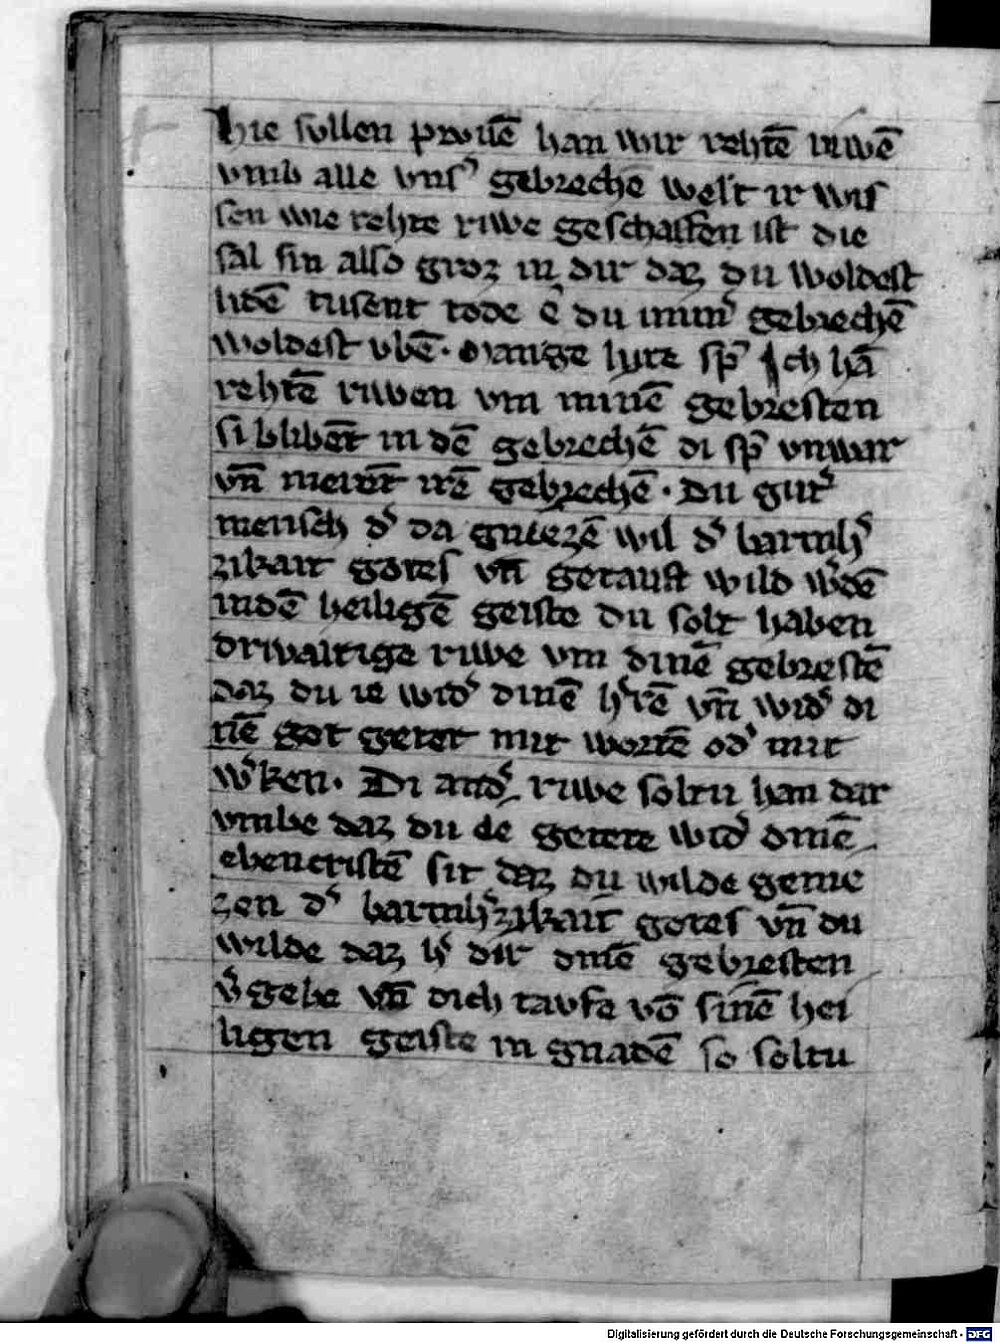 hie sullen prouē han wir rehtē riwē
vmb alle vnsʼ gebrechē welſt ir wiſ
ſen wie rehte riwe geſchaffen iſt die
ſal ſin alſo groz in dir daz du woldeſt
lidē tuſent tode ê du immʼ gebrechē
woldeſt vbē· Manige lute ſpʼ Ich hā
rehtē riwen vm minē gebreſten
ſi blibēt in dē gebrechē di ſpʼ vnwar
vn̄ merēt irē gebrechē· Du gutʼ
menſch dʼ da gniezē wil dʼ barmhʼ
zikait gotes vn̄ getauft wild wʼdē
indē heiligē geiſte du ſolt haben
drivaltige riwe vm dinē gebreſtē
daz du ie widʼ dinē hʼrē vn̄ widʼ di
nē got getet mit wortē odʼ mit
wʼken· Di andʼ riwe ſoltu han dar
vmbe daz du de getete widʼ dinē
ebencriſtē ſit daz du wilde genie
zen dʼ barmhʼzikait gotes vn̄ du
wilde daz hʼ dir dinē gebreſten
vʼgebe vn̄ dich taufe vō ſinē hei
ligen geiſte in gnadē ſo ſoltu
Digitalisierung gefördert durch die Deutsche Forschungsgemeinschaft - DFG